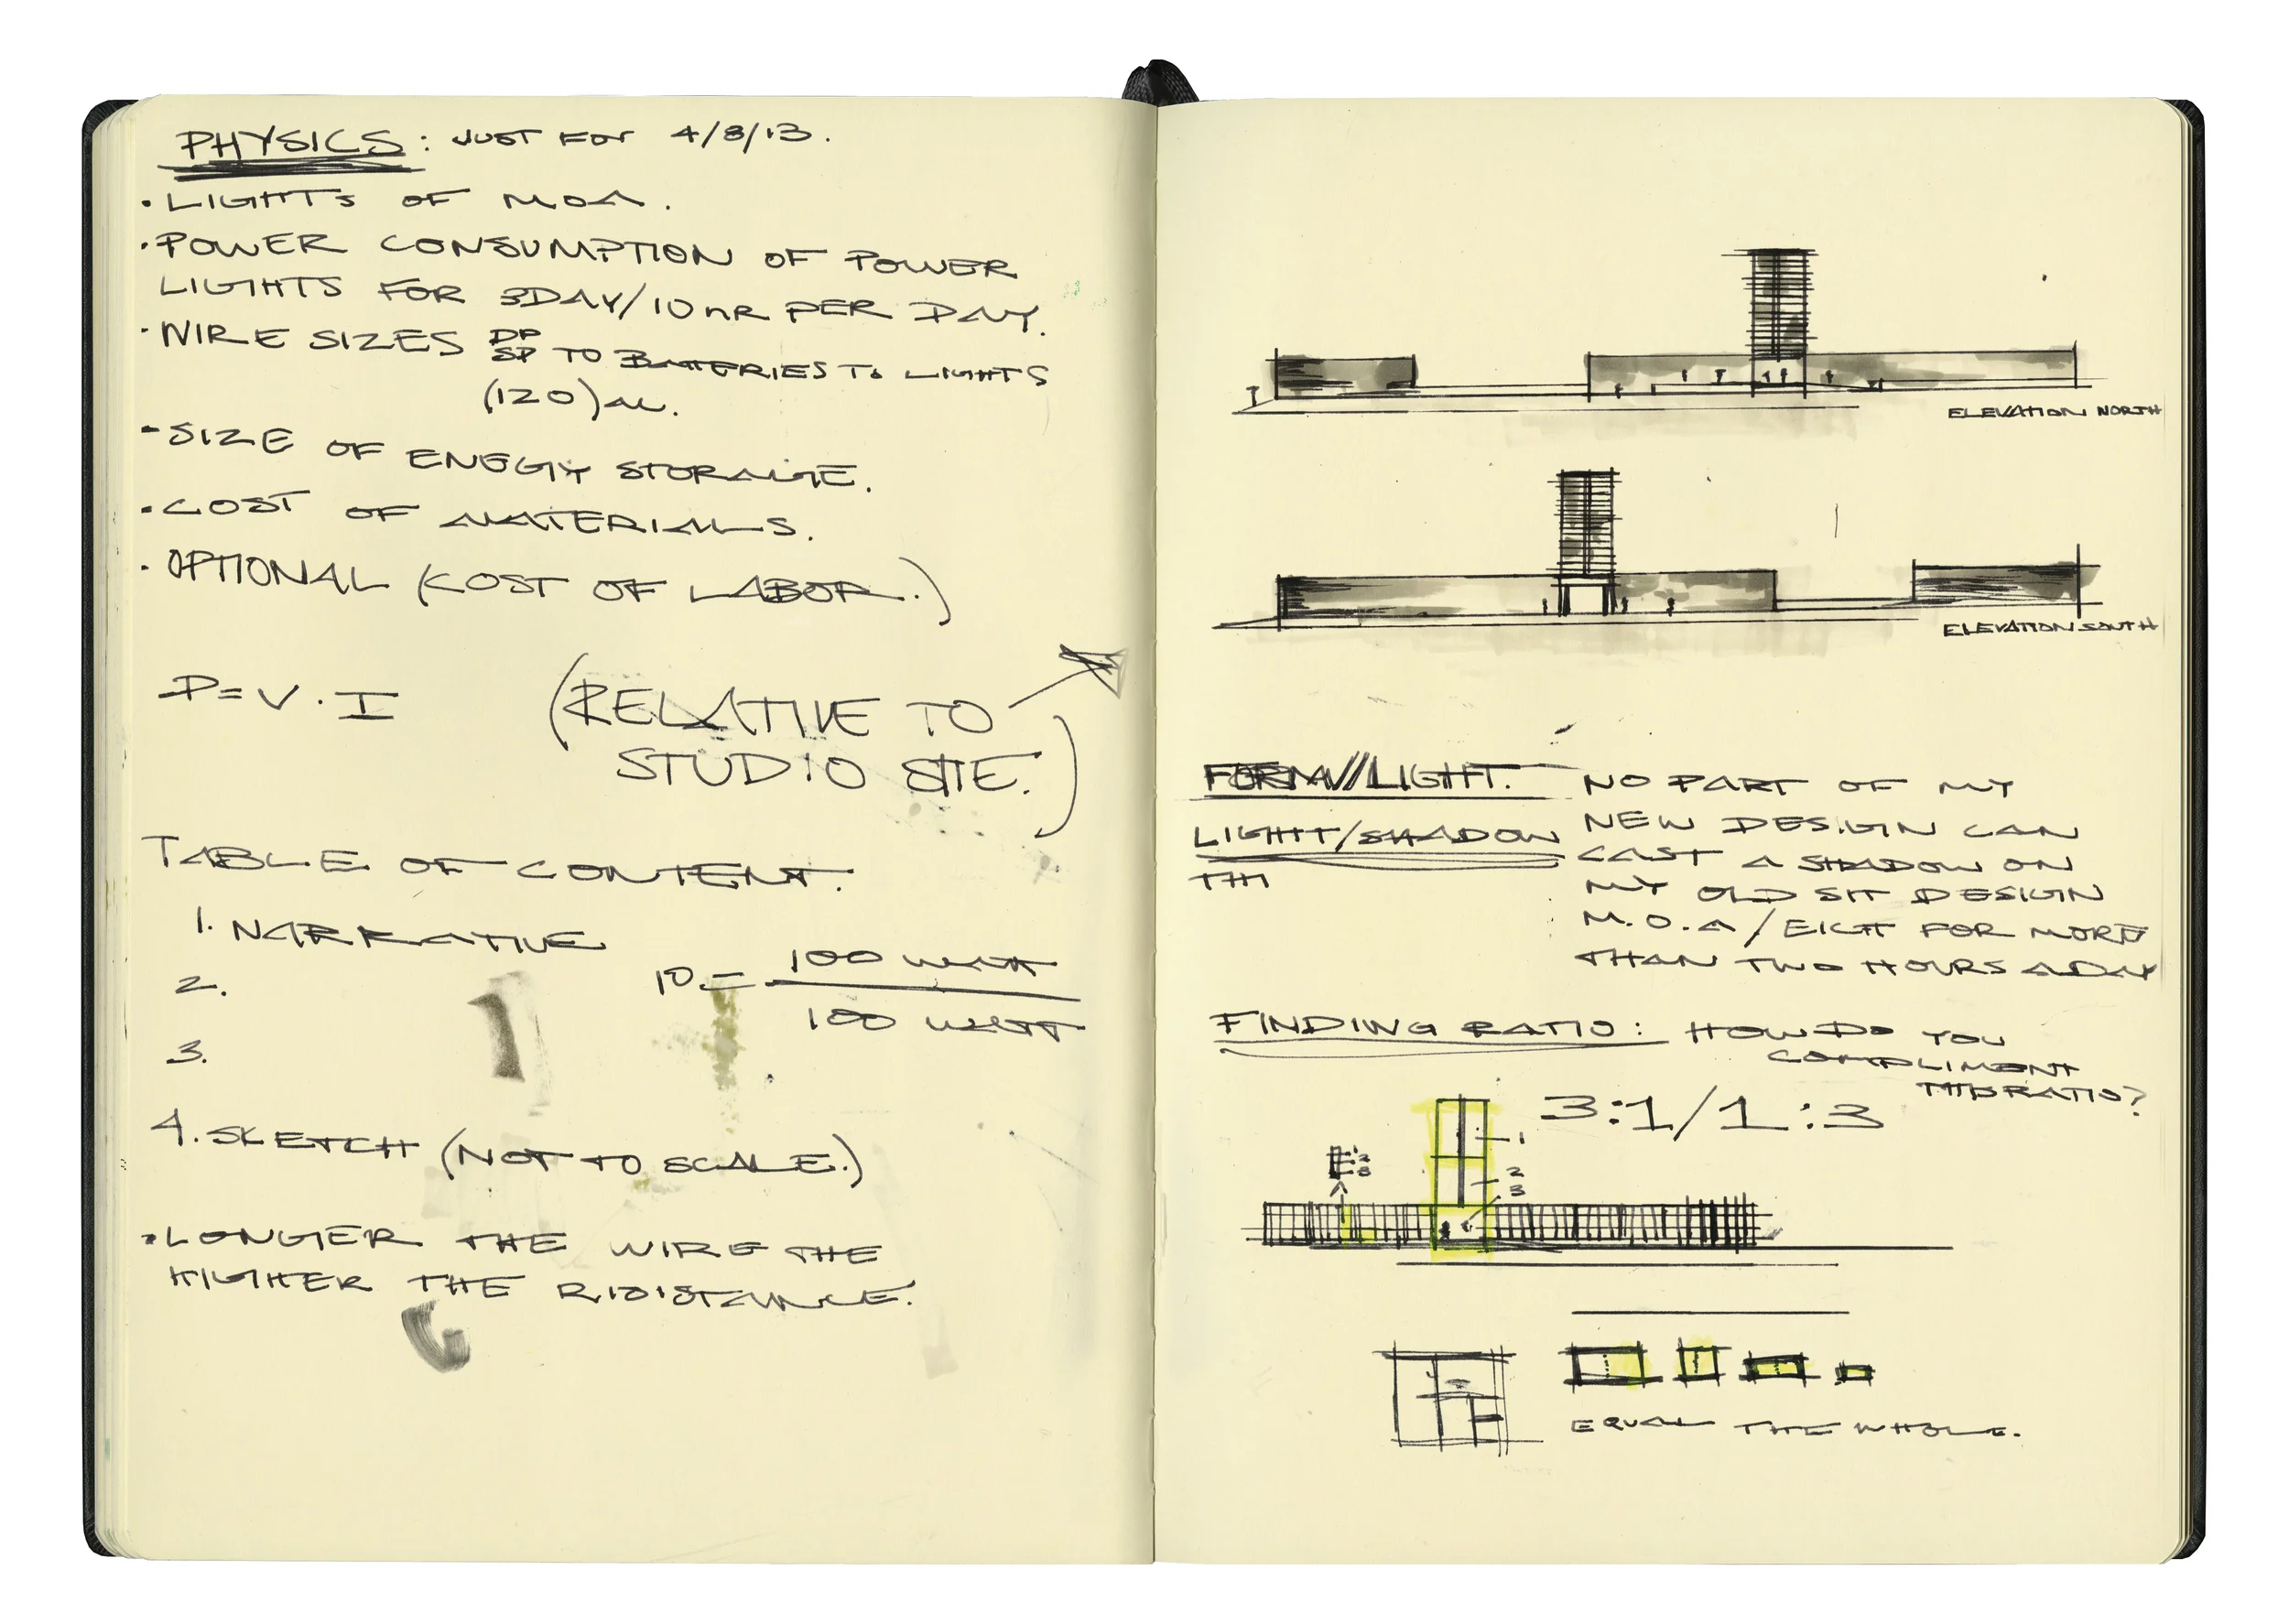 PHYSICS: JUST FOR 4/8/13.
· LIGHTS OF MOA.
· POWER CONSUMPTION OF POWER
LIGHTS FOR 3DAY/10 HR PER DAY.
· WIRE SIZES DP
SP TO BATTERIES TO LIGHTS
(120)
- SIZE OF ENEGY STORAGE.
· COST OF MATERIALS.
· OPTIONAL (COST OF LABOR.)
P=V·I
(RELATIVE TO
STUDIO SITE.)
TABLE OF CONTENT.
1. NARRATIVE
2.
3.
10 = 100 WATT
100 WATT
4. SKETCH (NOT TO SCALE.)
· LONGER THE WIRE THE
HIGHER THE RISISTANCE.
ELEVATION NORTH
ELEVATION SOUTH
FORM//LIGHT.
LIGHT/SHADOW
THI
NO PART OF MY
NEW DESIGN CAN
CAST A SHADOW ON
MY OLD SIT DESIGN
M.O.A/EIGH FOR MORE
THAN TWO HOURS A DAY
FINDING RATIO: HOW DO YOU
COMPLIMENT
THIS RATIO?
3:1/1:3
1
2
3
1
2
3
EQUAL THE WHOLE.